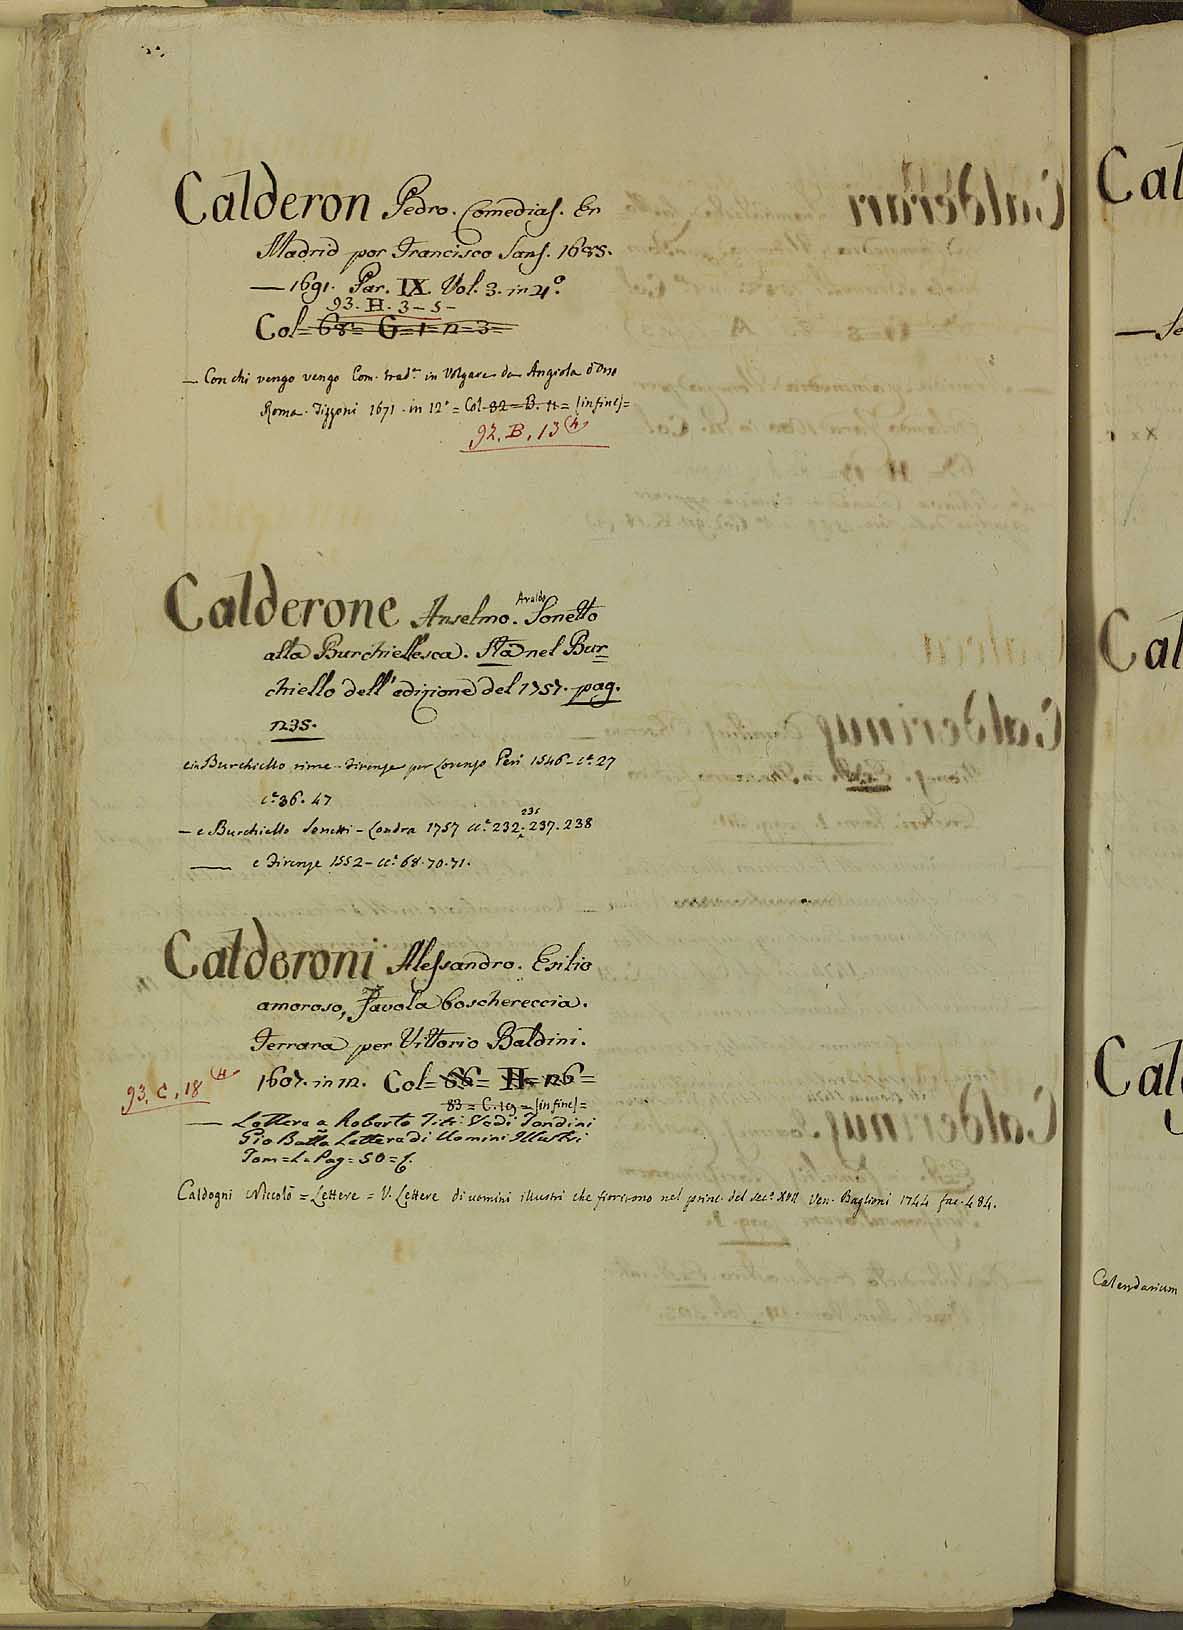 Calderon Pedro. Comedias. En
Madrid por Francisco Sans. 1685.
— 1691. Par. IX. Vol. 3. in 4.º
93. H. 3 – 5 –
Col= 68= G= 1= n= 3=
— Con chi vengo vengo Com. trad.ª in Volgare da Angiola d'Orso
Roma. Tizzoni 1671. in 12º = Col. 82 = B. 11 = (in fine) =
92. B. 13
Calderone Anselmo. Araldo Sonetto
alla Burchiellesca. Sta nel Bur
chiello dell'edizione del 1757. pag.
235.
e in Burchiello rime - Firenze per Lorenzo Peri 1546 - cᵉ 27
cᵉ 36. 47
— e Burchiello Sonetti - Londra 1757 ccᵉ 232. 235 237. 238
— e Firenze 1552 - ccᵉ 68. 70. 71.
Calderoni Alessandro. Esilio
amoroso, Favola boschereccia.
Ferrara per Vittorio Baldini.
1607. in 12. Col= 66= H= 126=
93. C. 18
83 = C. 19 = (in fine) =
— Lettera a Roberto Titi. Vedi Tondini
Gio Batta Lettere di Uomini Illustri
Tom= I. Pag= 50=
Caldogni Niccolò = Lettere = V. Lettere di uomini illustri che fiorirono nel princ. del sec.º XVII Ven. Baglioni 1744 fac. 484.
Cal
— Se
Cal
Cal
Calendarium